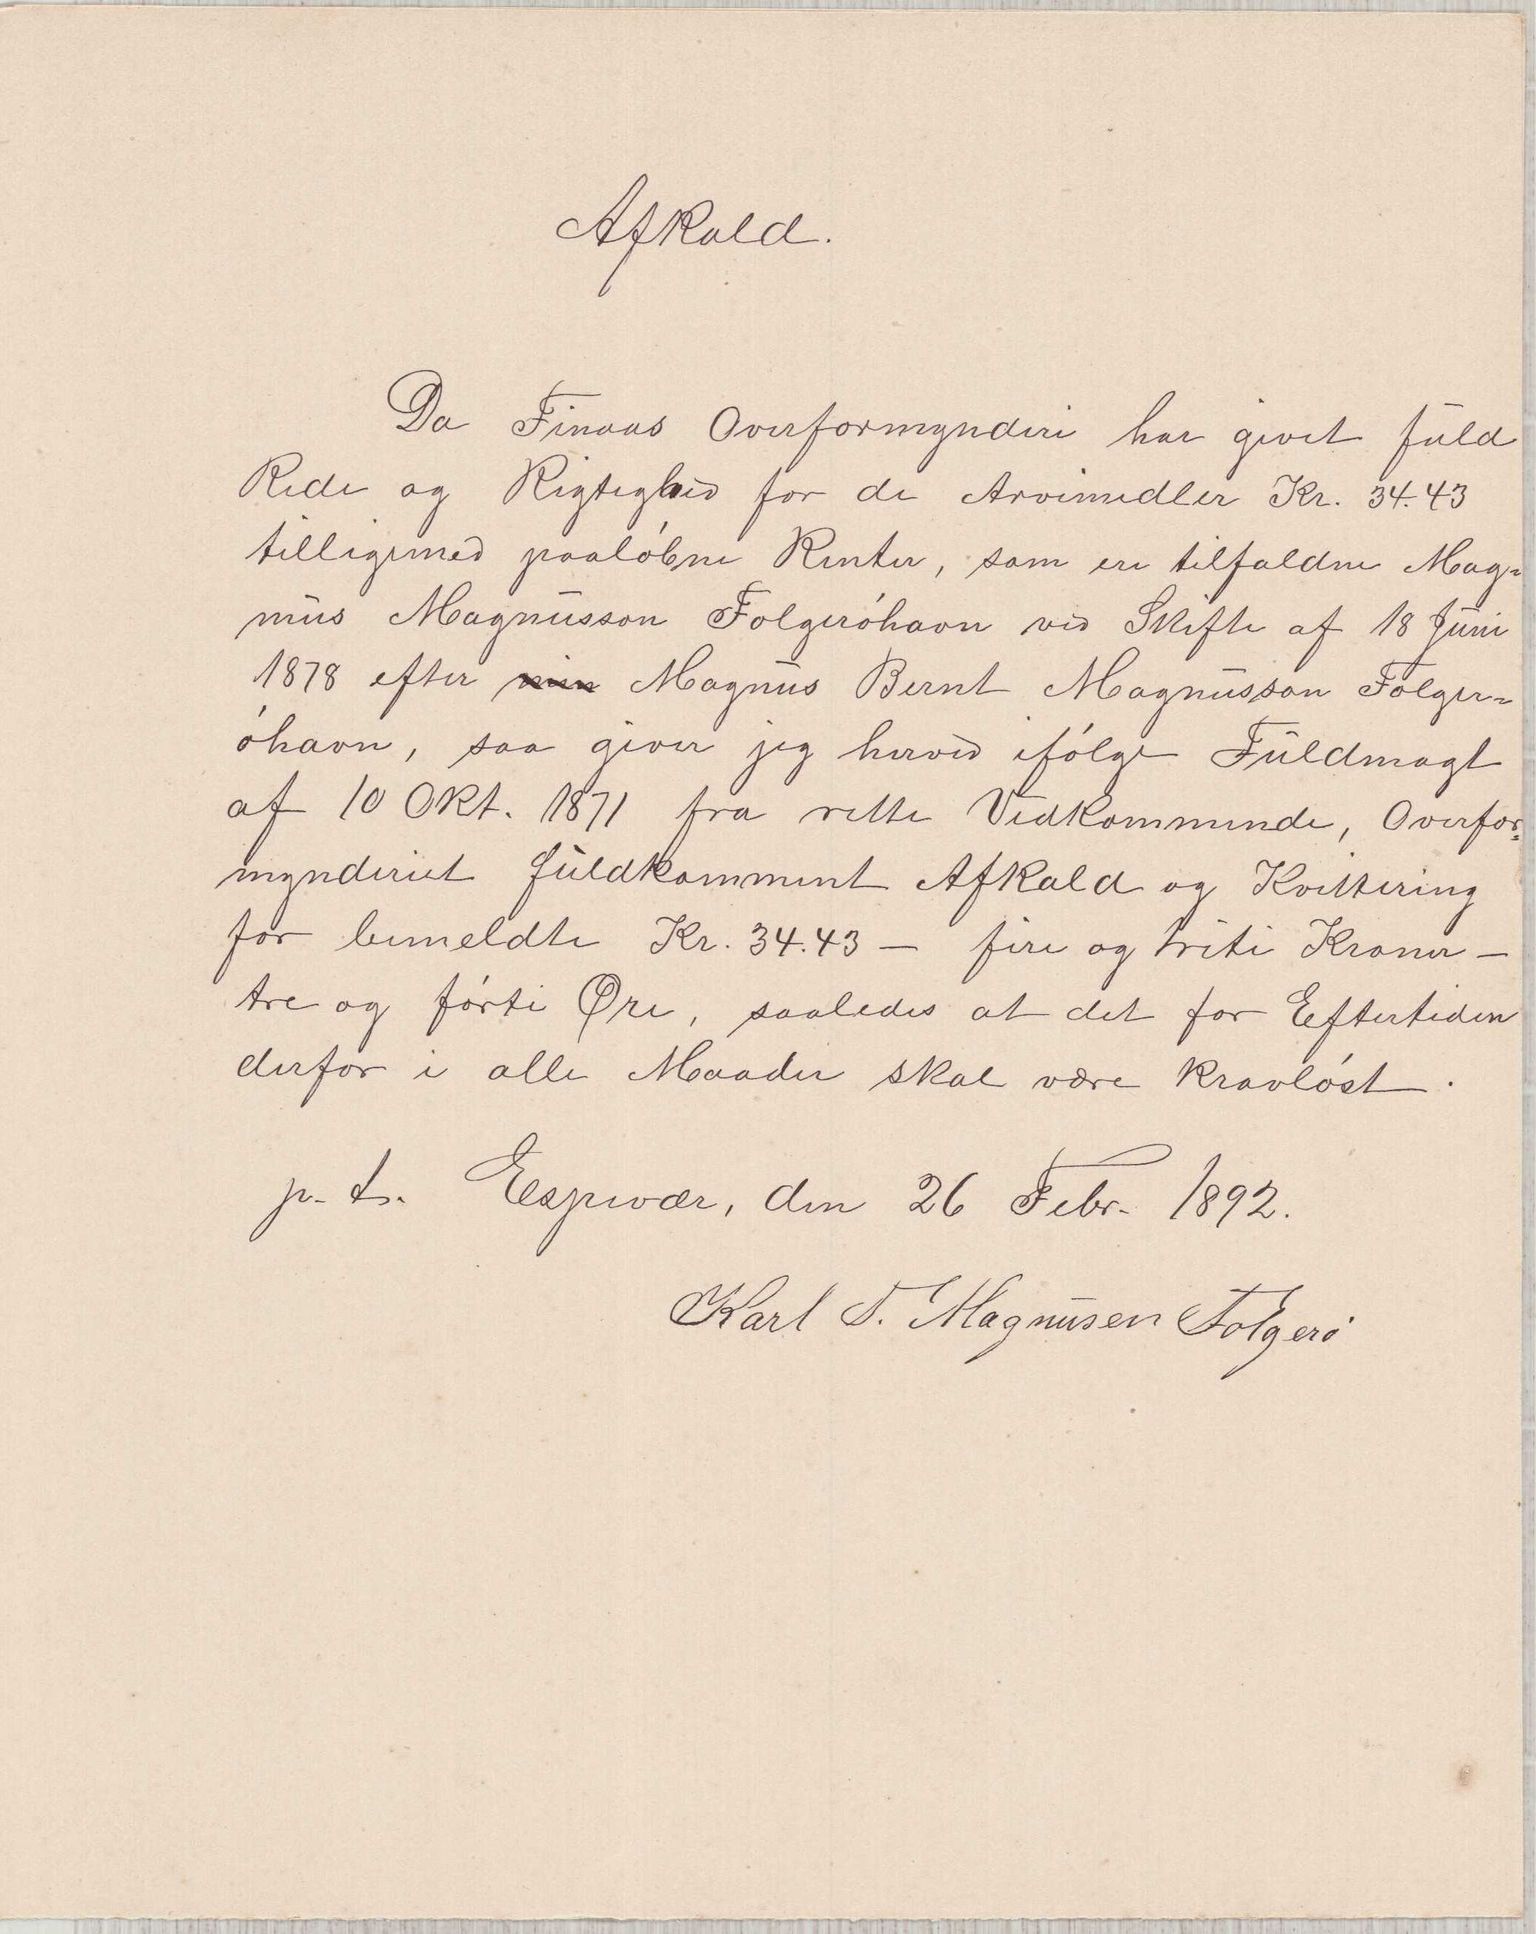 Afkald.
Da Finaas Overformynderi har givet fuld
Rede og Rigtighed for de Arvemidler Kr. 34.43
tilligemed paaløbne Renter, som ere tilfaldne Mag-
nus Magnusson Folgerøhavn ved Skifte af 18 Juni
1878 efter min Magnus Bernt Magnusson Folger-
øhavn, saa giver jeg herved ifølge Fuldmagt
af 10 Okt. 1871 fra rette Vedkommende, Overfor-
mynderiet fuldkomment Afkald og Kvittering
for bemeldte Kr. 34.43 — fire og triti Kroner —
tre og førti Øre, saaledes at det for Eftertiden
derfor i alle Maader skal være kravløst.
p. t. Espevær, den 26 Febr. 1892.
Karl T. Magnusen Folgerø